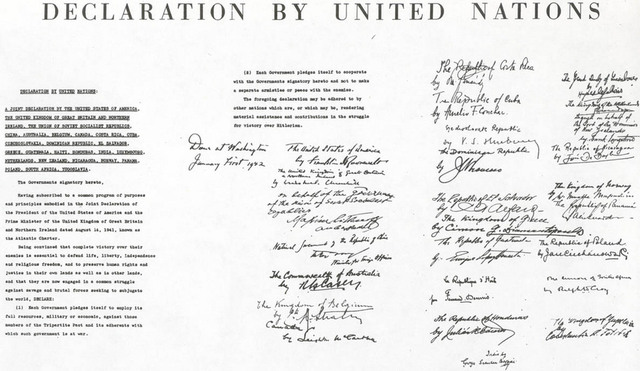 DECLARATION BY UNITED NATIONS
DECLARATION BY UNITED NATIONS:
A JOINT DECLARATION BY THE UNITED STATES OF AMERICA,
THE UNITED KINGDOM OF GREAT BRITAIN AND NORTHERN
IRELAND, THE UNION OF SOVIET SOCIALIST REPUBLICS,
CHINA, AUSTRALIA, BELGIUM, CANADA, COSTA RICA, CUBA,
CZECHOSLOVAKIA, DOMINICAN REPUBLIC, EL SALVADOR,
GREECE, GUATEMALA, HAITI, HONDURAS, INDIA, LUXEMBOURG,
NETHERLANDS, NEW ZEALAND, NICARAGUA, NORWAY, PANAMA,
POLAND, SOUTH AFRICA, YUGOSLAVIA.
The Governments signatory hereto,
Having subscribed to a common program of purposes
and principles embodied in the Joint Declaration of
the President of the United States of America and the
Prime Minister of the United Kingdom of Great Britain
and Northern Ireland dated August 14, 1941, known as
the Atlantic Charter.
Being convinced that complete victory over their
enemies is essential to defend life, liberty, independence
and religious freedom, and to preserve human rights and
justice in their own lands as well as in other lands,
and that they are now engaged in a common struggle
against savage and brutal forces seeking to subjugate
the world, DECLARE:
(1) Each Government pledges itself to employ its
full resources, military or economic, against those
members of the Tripartite Pact and its adherents with
which such government is at war.
(2) Each Government pledges itself to cooperate
with the Governments signatory hereto and not to make
a separate armistice or peace with the enemies.
The foregoing declaration may be adhered to by
other nations which are, or which may be, rendering
material assistance and contributions in the struggle
for victory over Hitlerism.
Done at Washington
January First 1942
The United States of America
by Franklin D Roosevelt
The United Kingdom of Great Britain
& Northern Ireland
by
On behalf of the Government
of the Union of Soviet Socialist
Republics
National Government of the Republic of China
Minister for Foreign Affairs
The Commonwealth of Australia
by R G Casey
The Kingdom of Belgium
by
Canada
by Leighton McCarthy
The Republic of Costa Rica
by
The Republic of Cuba
by
Czechoslovak Republic
by
The Dominican Republic
by
The Republic of El Salvador
by
The Kingdom of Greece
by
The Republic of Guatemala
by
La République d'Haiti
par
The Republic of Honduras
by
India by
Girja Shankar Bajpai
The Grand Duchy of Luxembourg
by
The Kingdom of the Netherlands
The Republic of Nicaragua
by
The Kingdom of Norway
by
The Republic of Panama
by
The Republic of Poland
by Jan Ciechanowski
The Union of South Africa
by
The Kingdom of Yugoslavia
by